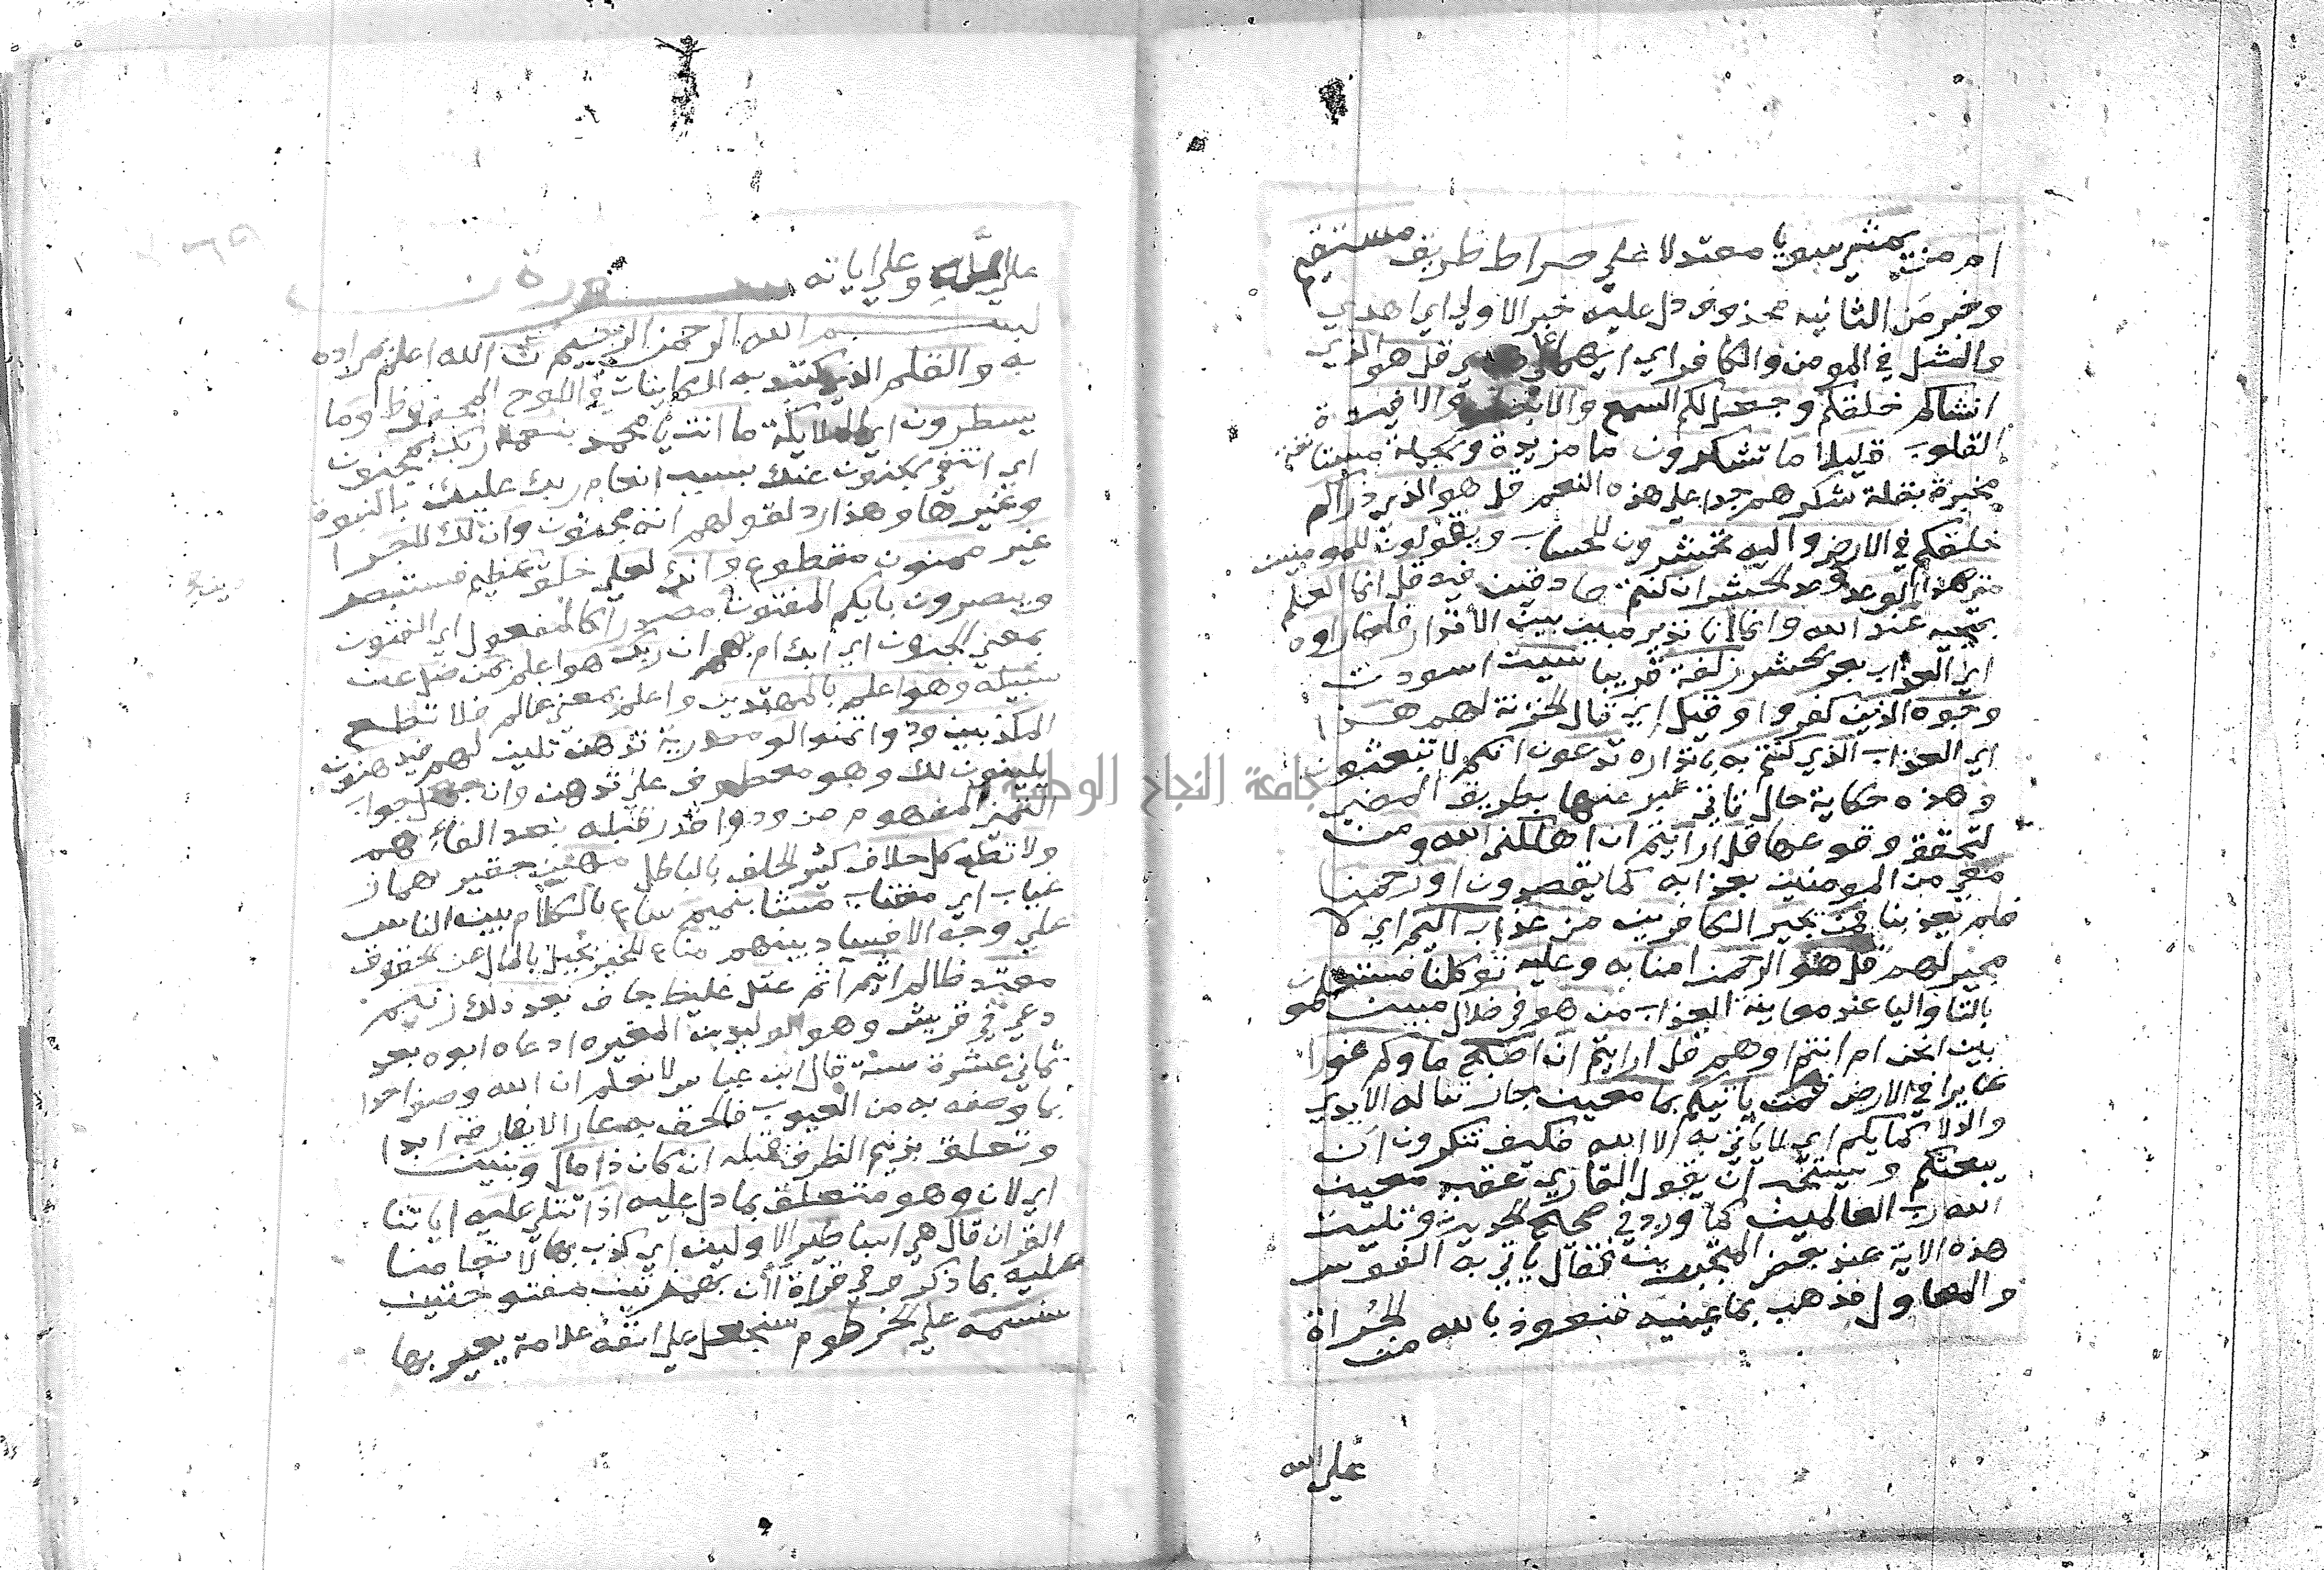 امن يمشي سويا معتدلا علي صراط طريق مستقيم
وخبر من الثانيه محذوف دل عليه خبر الاولي اي اهدي
والمثل في المومن والكافر اي ايهما علي قل هو الذي
انشاكم خلقكم وجعل لكم السمع والابصار والافيدة
القلوب قليلا ما تشكرون ما مزيدة والجملة مستانفة
مخبرة بقلة شكرهم جدا علي هذه النعم قل هو الذي ذراكم
خلقكم في الارض واليه تحشرون للحساب ويقولون للمومنين
متي هذا الوعد وعد الحشر ان كنتم صادقين فيه قل انما العلم
بمجيه عند الله وانما انا نذير مبين بين الانذار فلما راوه
اي العذاب بعد الحشر زلفة قريبا سيئت اسودت
وجوه الذين كفروا وقيل اي قال الخزنة لهم هذا
اي العذاب الذي كنتم به بانذاره تدعون انكم لا تبعثون
وهذه حكاية حال تاتي عبر عنها بطريق المضي
لتحقق وقوعها قل ارايتم ان اهلكني الله ومن
معي من المومنين بعذابه كما يقصدون او رحمنا
فلم يعذبنا فمن يجير الكافرين من عذاب اليم اي لا
مجير لهم قل هو الرحمن امنا به وعليه توكلنا فستعلمون
بالتا واليا عند معاينة العذاب من هو في ضلال مبين
بين انحن ام انتم او هم قل ارايتم ان اصبح ماوكم غورا
غايرا في الارض فمن ياتيكم بما معين جار تناله الايدي
والدلا كمايكم اي لا ياتي به الا الله فكيف تنكرون ان
يبعثكم ويستحب ان يقول القاري عقب معين
الله رب العالمين كما ورد في الحديث وتليت
هذه الاية عند بعض المتجبرين فقال ياتي به الفوس
والمعاول فذهب ما عينيه فنعوذ بالله من الجراة
علي الله
علي الله وعلي اياته سورة ن
بسم الله الرحمن الرحيم ن الله اعلم بمراده
به والقلم الذي كتب به الكاينات في اللوح المحفوظ وما
يسطرون اي الملايكة ما انت يا محمد بنعمة ربك بمجنون
اي انتفي الجنون عنك بسبب انعام ربك عليك بالنبوة
وغيرها وهذا رد لقولهم انه مجنون وان لك لاجرا
غير ممنون مقطوع وانك لعلي خلق عظيم فستبصر
ويبصرون بايكم المفتون مصدر كالمفعول اي الفتون
بمعني الجنون اي ابك ام بهم ان ربك هو اعلم بمن ضل عن
سبيله وهو اعلم بالمهتدين واعلم بمعني عالم فلا تطع
المكذبين ودوا تمنوا لو مصدرية تدهن تلين لهم فيدهنون
يلينون لك وهو معطوف علي تدهن وان جعل جواب
التمني المفهوم من ودوا قدر قبله بعد الفا هم
ولا تطع كل حلاف كثير الحلف بالباطل مهين حقير هماز
عياب اي مغتاب مشا بنميم ساع بالكلام بين الناس
علي وجه الافساد بينهم مناع للخير بخيل بالمال عن الحقوق
معتد ظالم اثيم اثم عتل غليظ جاف بعد ذلك زنيم
دعي في قريش وهو الوليد بن المغيره ادعاه ابوه بعد
ثماني عشرة سنة قال ابن عباس لا نعلم ان الله وصف احدا
بما وصفه به من العيوب فالحق به عار لا يفارقه ابدا
وتعلق بزنيم الظرف قبله ان كان ذا مال وبنين
اي لان وهو متعلق بما دل عليه اذا تتلي عليه اياتنا
القران قال هي اساطير الاولين اي كذب بها لانعامنا
عليه بما ذكر وفي قراة اان بهمزتين مفتوحتين
سنسمه علي الخرطوم سنجعل علي انفه علامة يعير بها
جامعة النجاح الوطنية